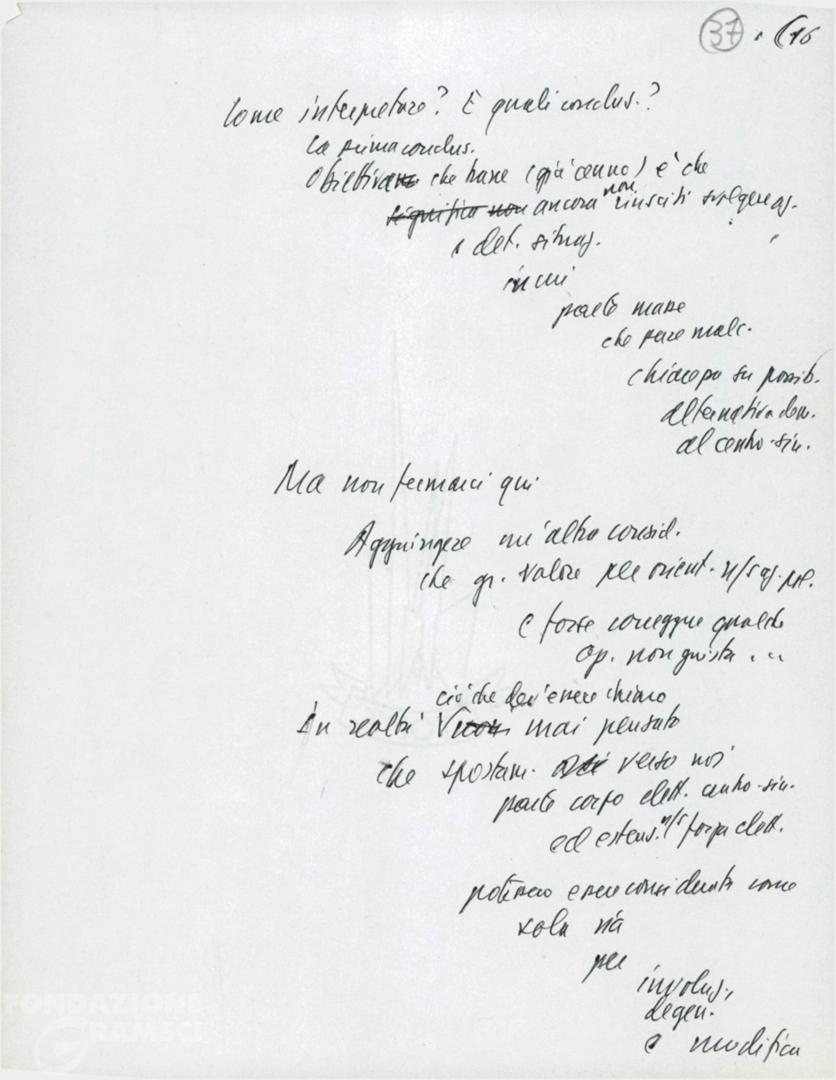 37 . (16
Come interpretare? E quali conclus.?
La prima conclus.
Obiettiva che trarre (già cenno) è che
significa non ancora non riusciti svolgere az.
e det. situaz.
in cui
parte masse
che pure malc.
chiarezza su possib.
alternativa dem.
al centro-sin.
Ma non fermarci qui
Aggiungere un'altra consid.
che gr. valore per orient. n/s az. pol.
e forse corregge qualche
op. non giusta ...
ciò che dev'essere chiaro
In realtà non mai pensato
che spostam. verso noi
parte corpo elett. centro-sin.
ed estens. n/s forza elett.
potessero essere considerati come
sola via
per
involuz.,
degen.
e modifica
FONDAZIONE
GRAMSCI